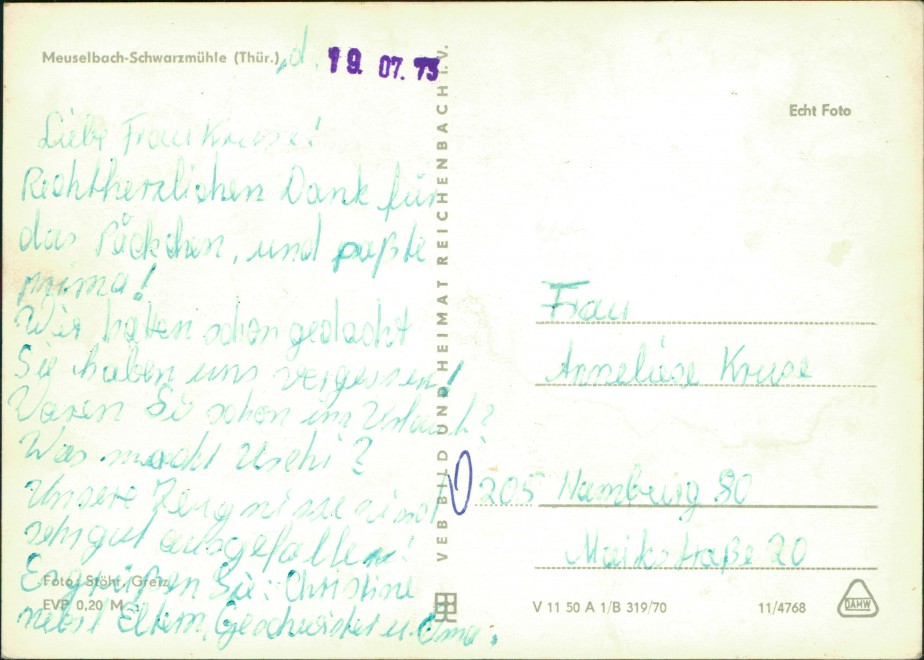 Meuselbach-Schwarzmühle (Thür.), d. 19. 07. 73
Liebe Frau Kruse!
Rechtherzlichen Dank für
das Päckchen, und paßte
prima!
Wir hatten schon gedacht
Sie haben uns vergessen!
Waren Si schon im Urlaub?
Was macht Uschi?
Unsere Zeugnisse sind
sehr gut ausgefallen!
Es grüßen Sie: Christine
nebst Eltern, Geschwister u. Oma.
Foto: Stöhr, Greiz
EVP 0,20 M
VEB BILD UND HEIMAT REICHENBACH I. V.
Echt Foto
Frau
Anneliese Kruse
0 205 Hamburg 80
Maikstraße 20
V 11 50 A 1/B 319/70
11/4768
DAHW